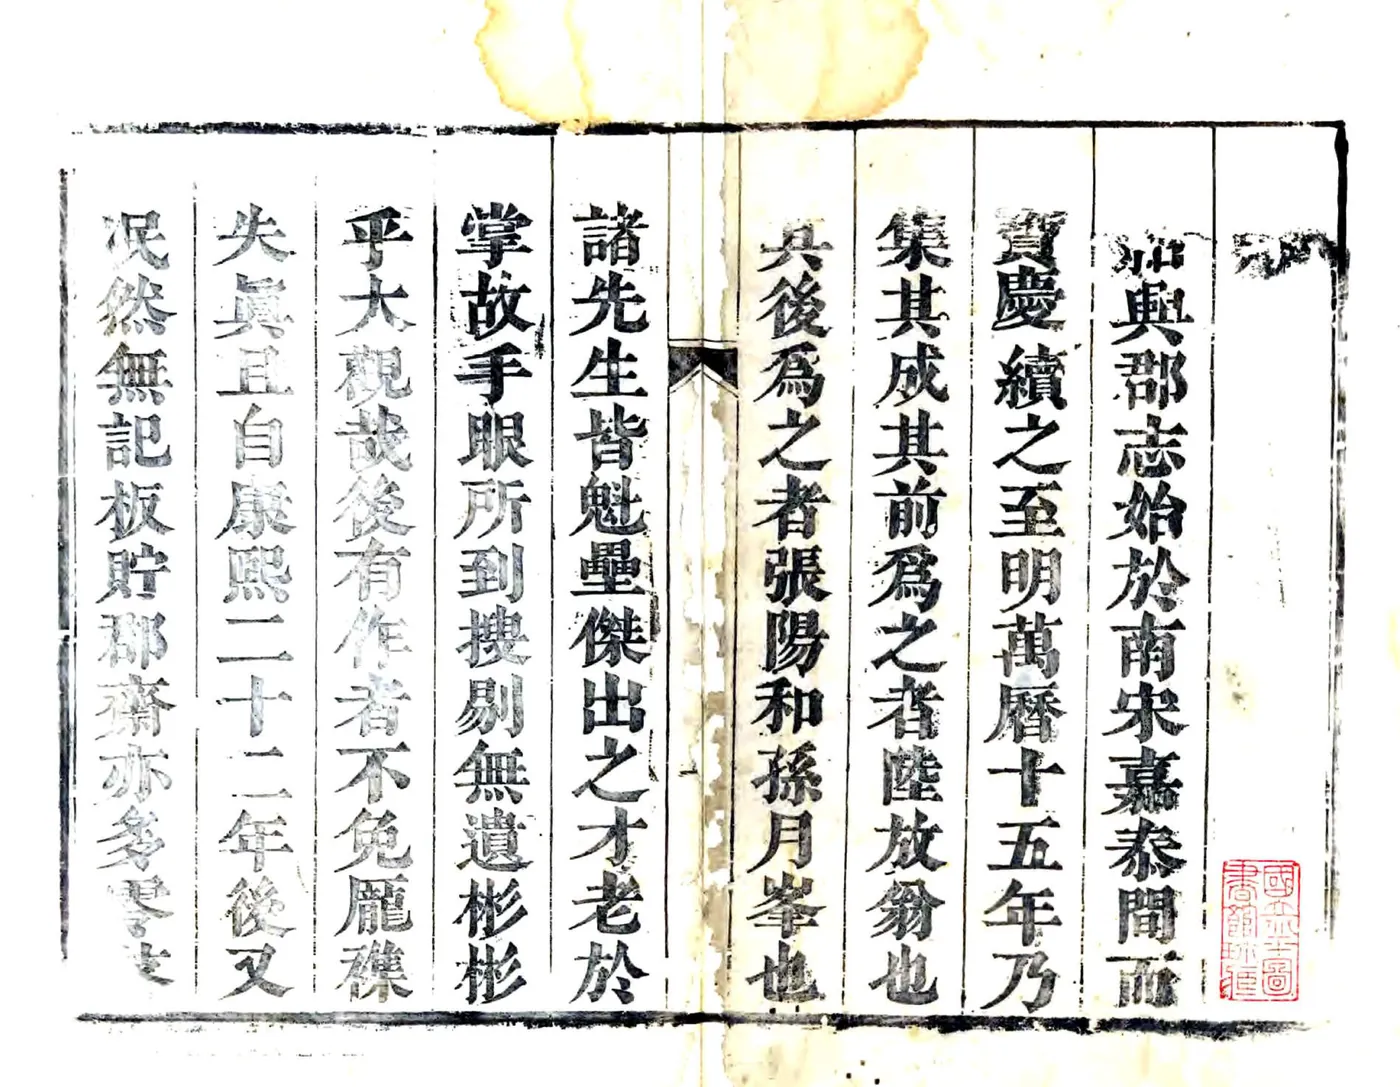 興郡志始於南宋嘉泰間而
寶慶續之至明萬曆十五年乃
集其成其前爲之者陸放翁也
其後爲之者張陽和孫月峯也
諸先生皆魁壘傑出之才老於
掌故手眼所到搜剔無遺彬彬
乎大觀哉後有作者不免龎襍
失眞且自康熙二十二年後又
泯然無記板貯郡齋亦多零